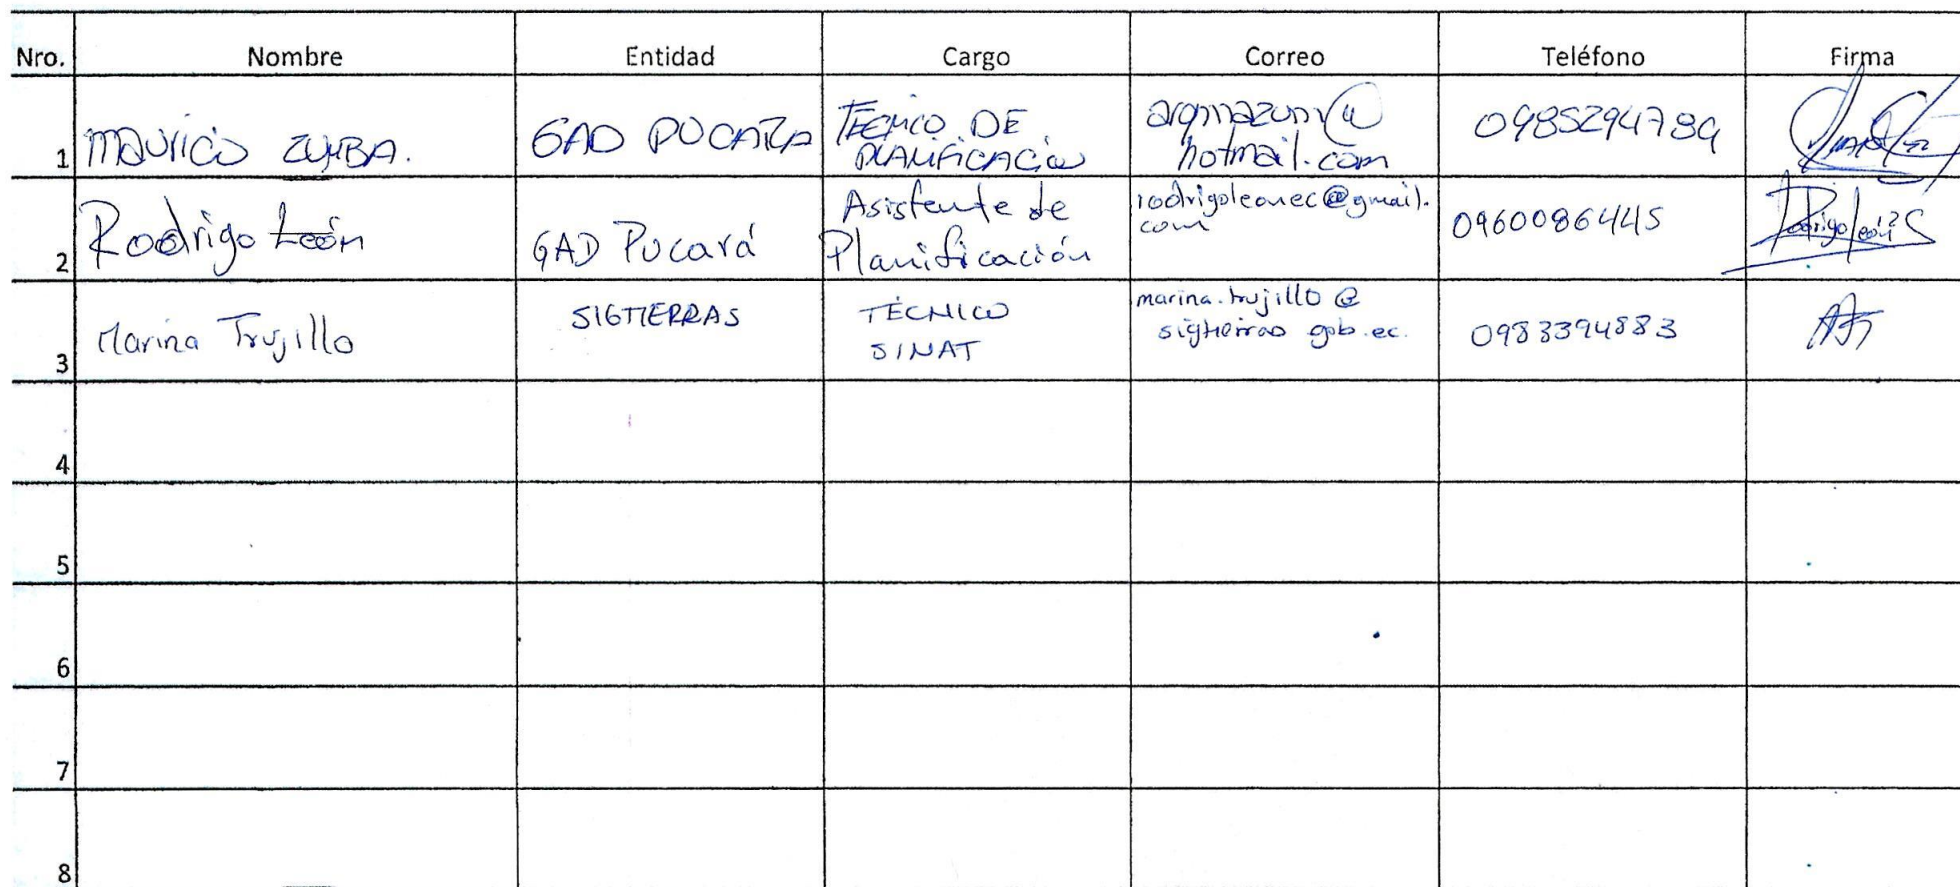 Nro. Nombre Entidad Cargo Correo Teléfono Firma
1 MAURICIO ZUMBA. GAD PUCARA TECNICO DE
PLANIFICACIÓN
hotmail.com 0985294789
2 Rodrigo León GAD Pucará Asistente de
Planificación rodrigoleonec@gmail.
com 0960086445 Rodrigo León
3 Marina Trujillo SIGTIERRAS TÉCNICO
SINAT marina.trujillo@
sigtierras gob.ec. 0983394883
4
5
6
7
8